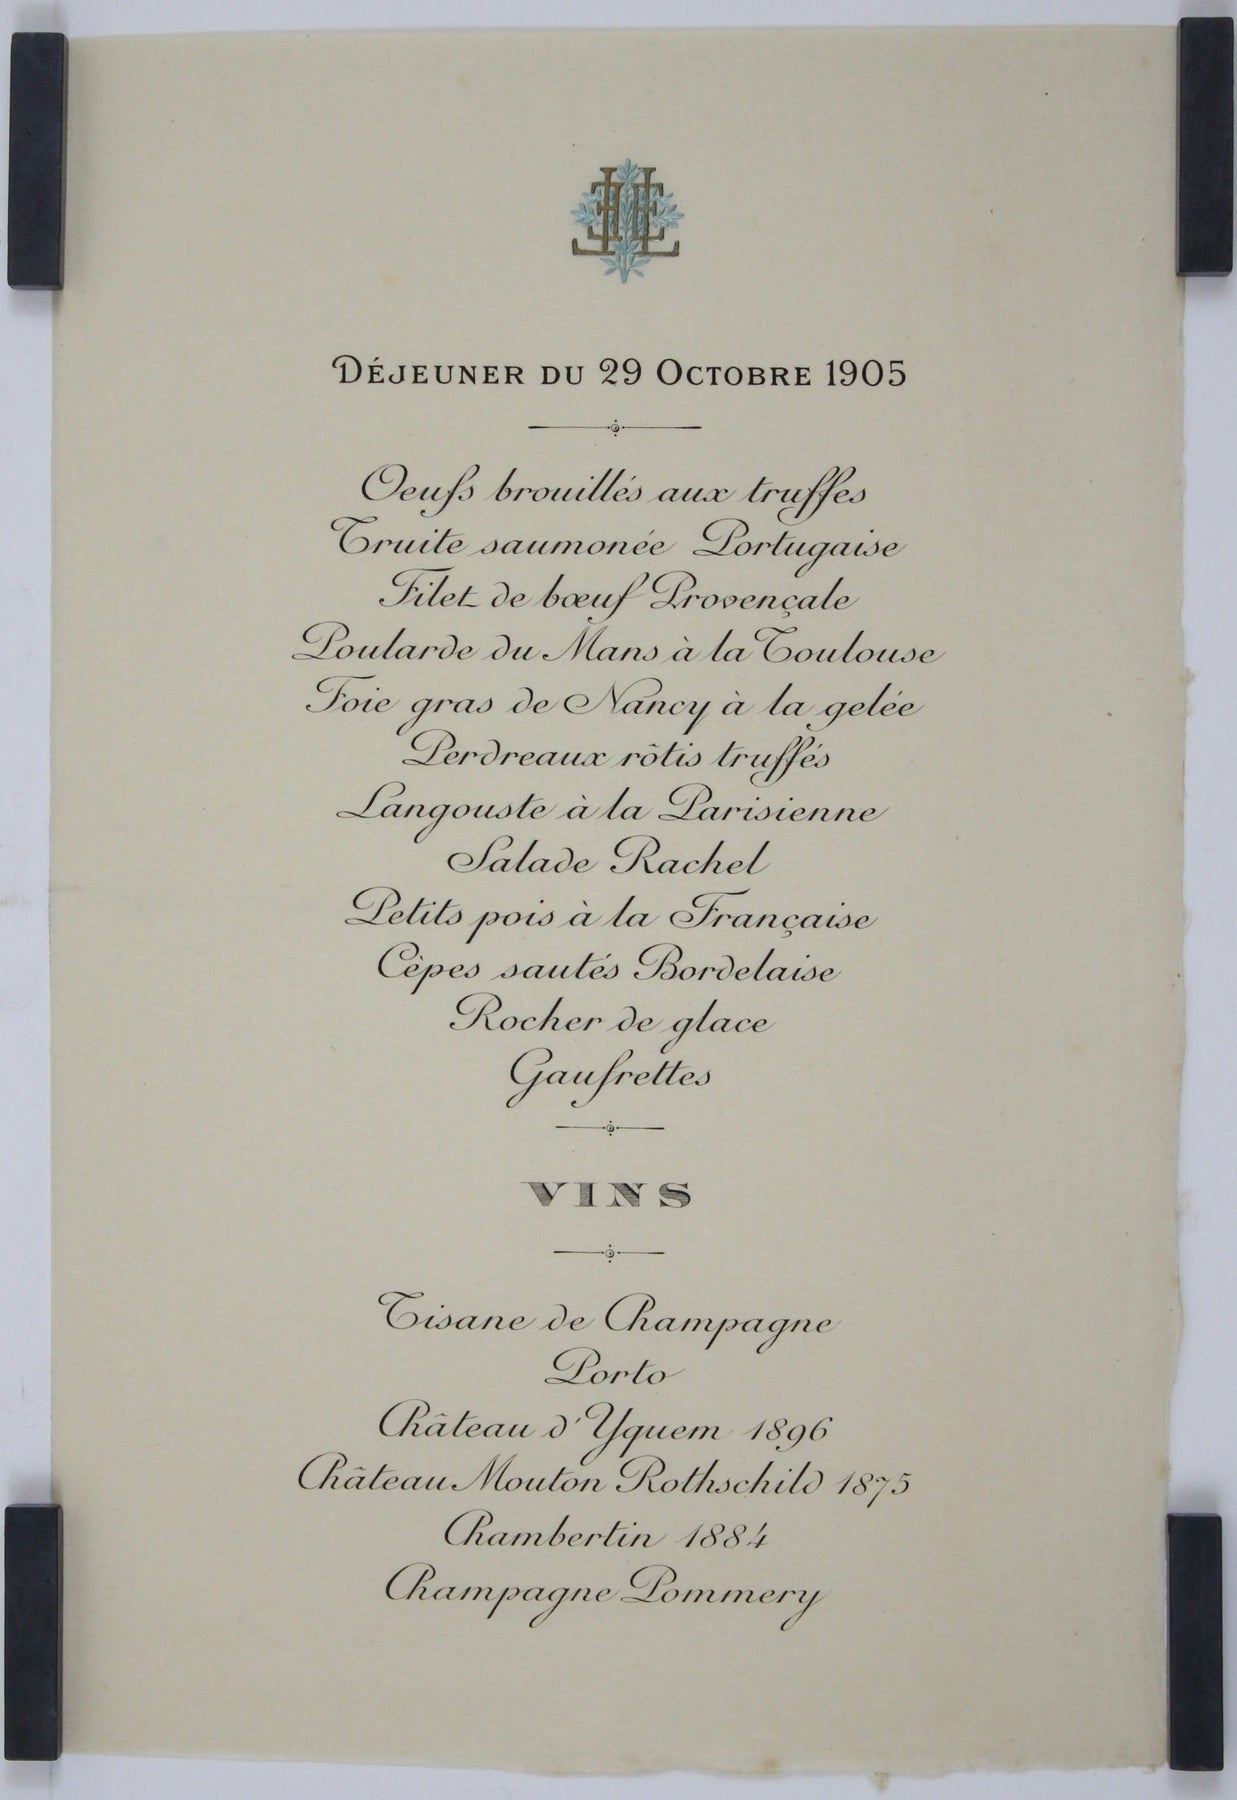 DÉJEUNER DU 29 OCTOBRE 1905
Oeufs brouillés aux truffes
Truite saumonée Portugaise
Filet de bœuf Provençale
Poularde du Mans à la Toulouse
Foie gras de Nancy à la gelée
Perdreaux rôtis truffés
Langouste à la Parisienne
Salade Rachel
Petits pois à la Française
Cèpes sautés Bordelaise
Rocher de glace
Gaufrettes
VINS
Tisane de Champagne
Porto
Château d'Yquem 1896
Château Mouton Rothschild 1875
Chambertin 1884
Champagne Pommery